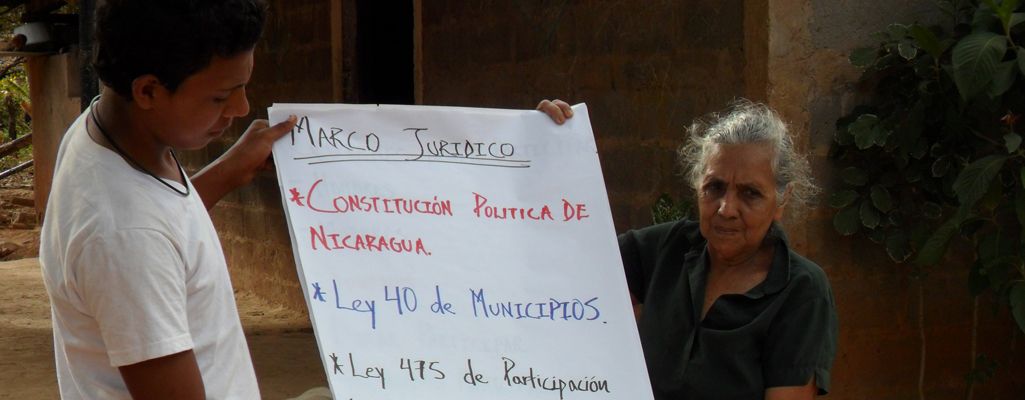 MARCO JURIDICO
* CONSTITUCIÓN POLITICA DE
NICARAGUA.
* Ley 40 de MUNICIPIOS.
* Ley 475 de Participación